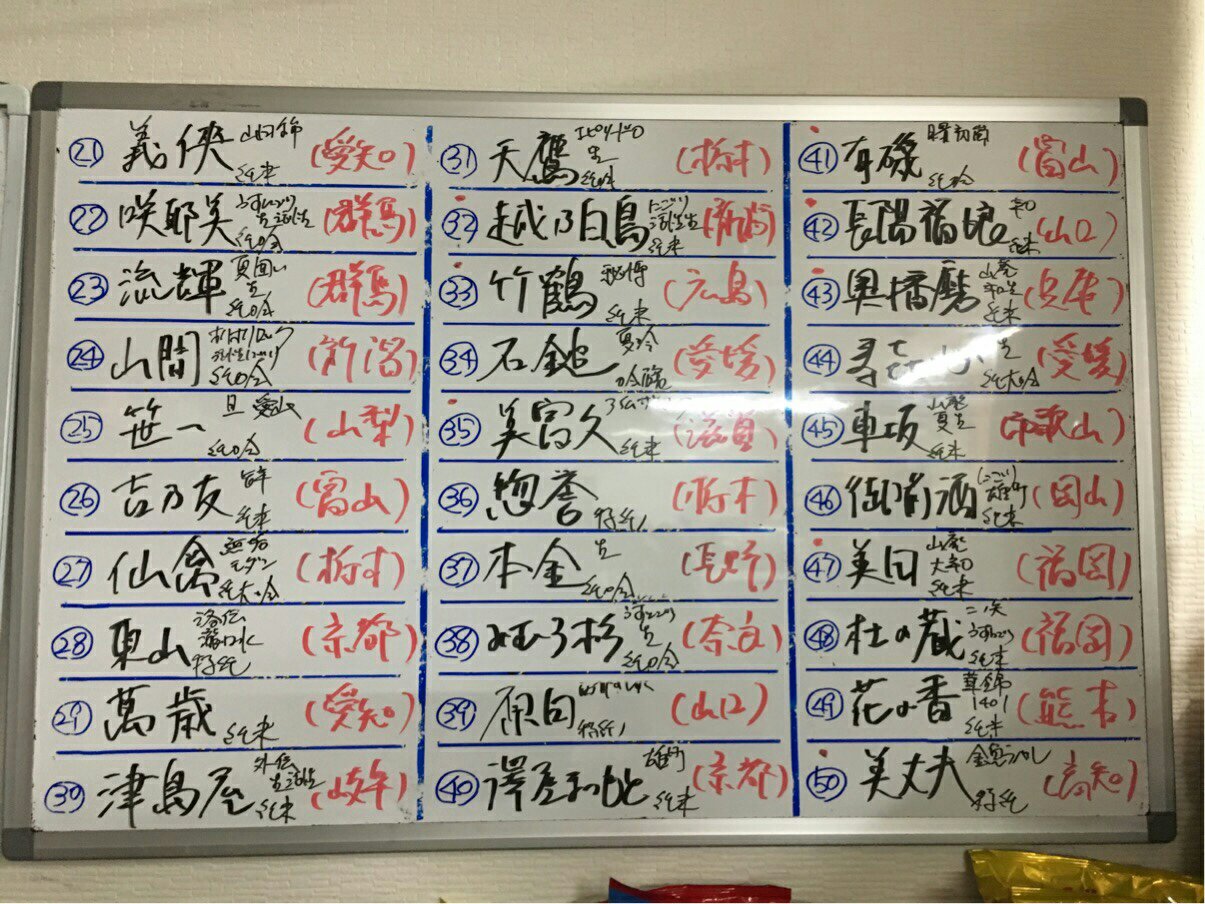 ㉑ 義侠 山田錦 純米 (愛知)
㉒ 咲耶美 うすにごり 純吟 (群馬)
㉓ 流輝 夏囲い 生 純吟 (群馬)
㉔ 山間 純吟 (新潟)
㉕ 笹一 旦 愛山 純吟 (山梨)
㉖ 吉乃友 純米 (富山)
㉗ 仙禽 モダン 純大吟 (栃木)
㉘ 東山 特純 (京都)
㉙ 萬歳 純米 (愛知)
㉚ 津島屋 外伝 純米 (岐阜)
㉛ 天鷹 生 純吟 (栃木)
㉜ 越乃白鳥 にごり 純米 (新潟)
㉝ 竹鶴 純米 (広島)
㉞ 石鎚 夏吟 吟醸 (愛媛)
㉟ 美冨久 純米 (滋賀)
㊱ 惣誉 特純 (栃木)
㊲ 本金 生 純吟 (長野)
㊳ みむろ杉 うすにごり 生 純吟 (奈良)
㊴ 原田 特純 (山口)
㊵ 澤屋まつもと 雄町 純米 (京都)
㊶ 有磯 純吟 (富山)
㊷ 長陽福娘 純米 (山口)
㊸ 奥播磨 山廃 純米 (兵庫)
㊹ 寿喜心 生 純大吟 (愛媛)
㊺ 車坂 山廃 夏生 純米 (和歌山)
㊻ 御前酒 にごり 雄町 純米 (岡山)
㊼ 美田 山廃 純米 (福岡)
㊽ 杜の蔵 うすにごり 純米 (福岡)
㊾ 花の香 華錦 1401 純米 (熊本)
㊿ 美丈夫 特純 (高知)